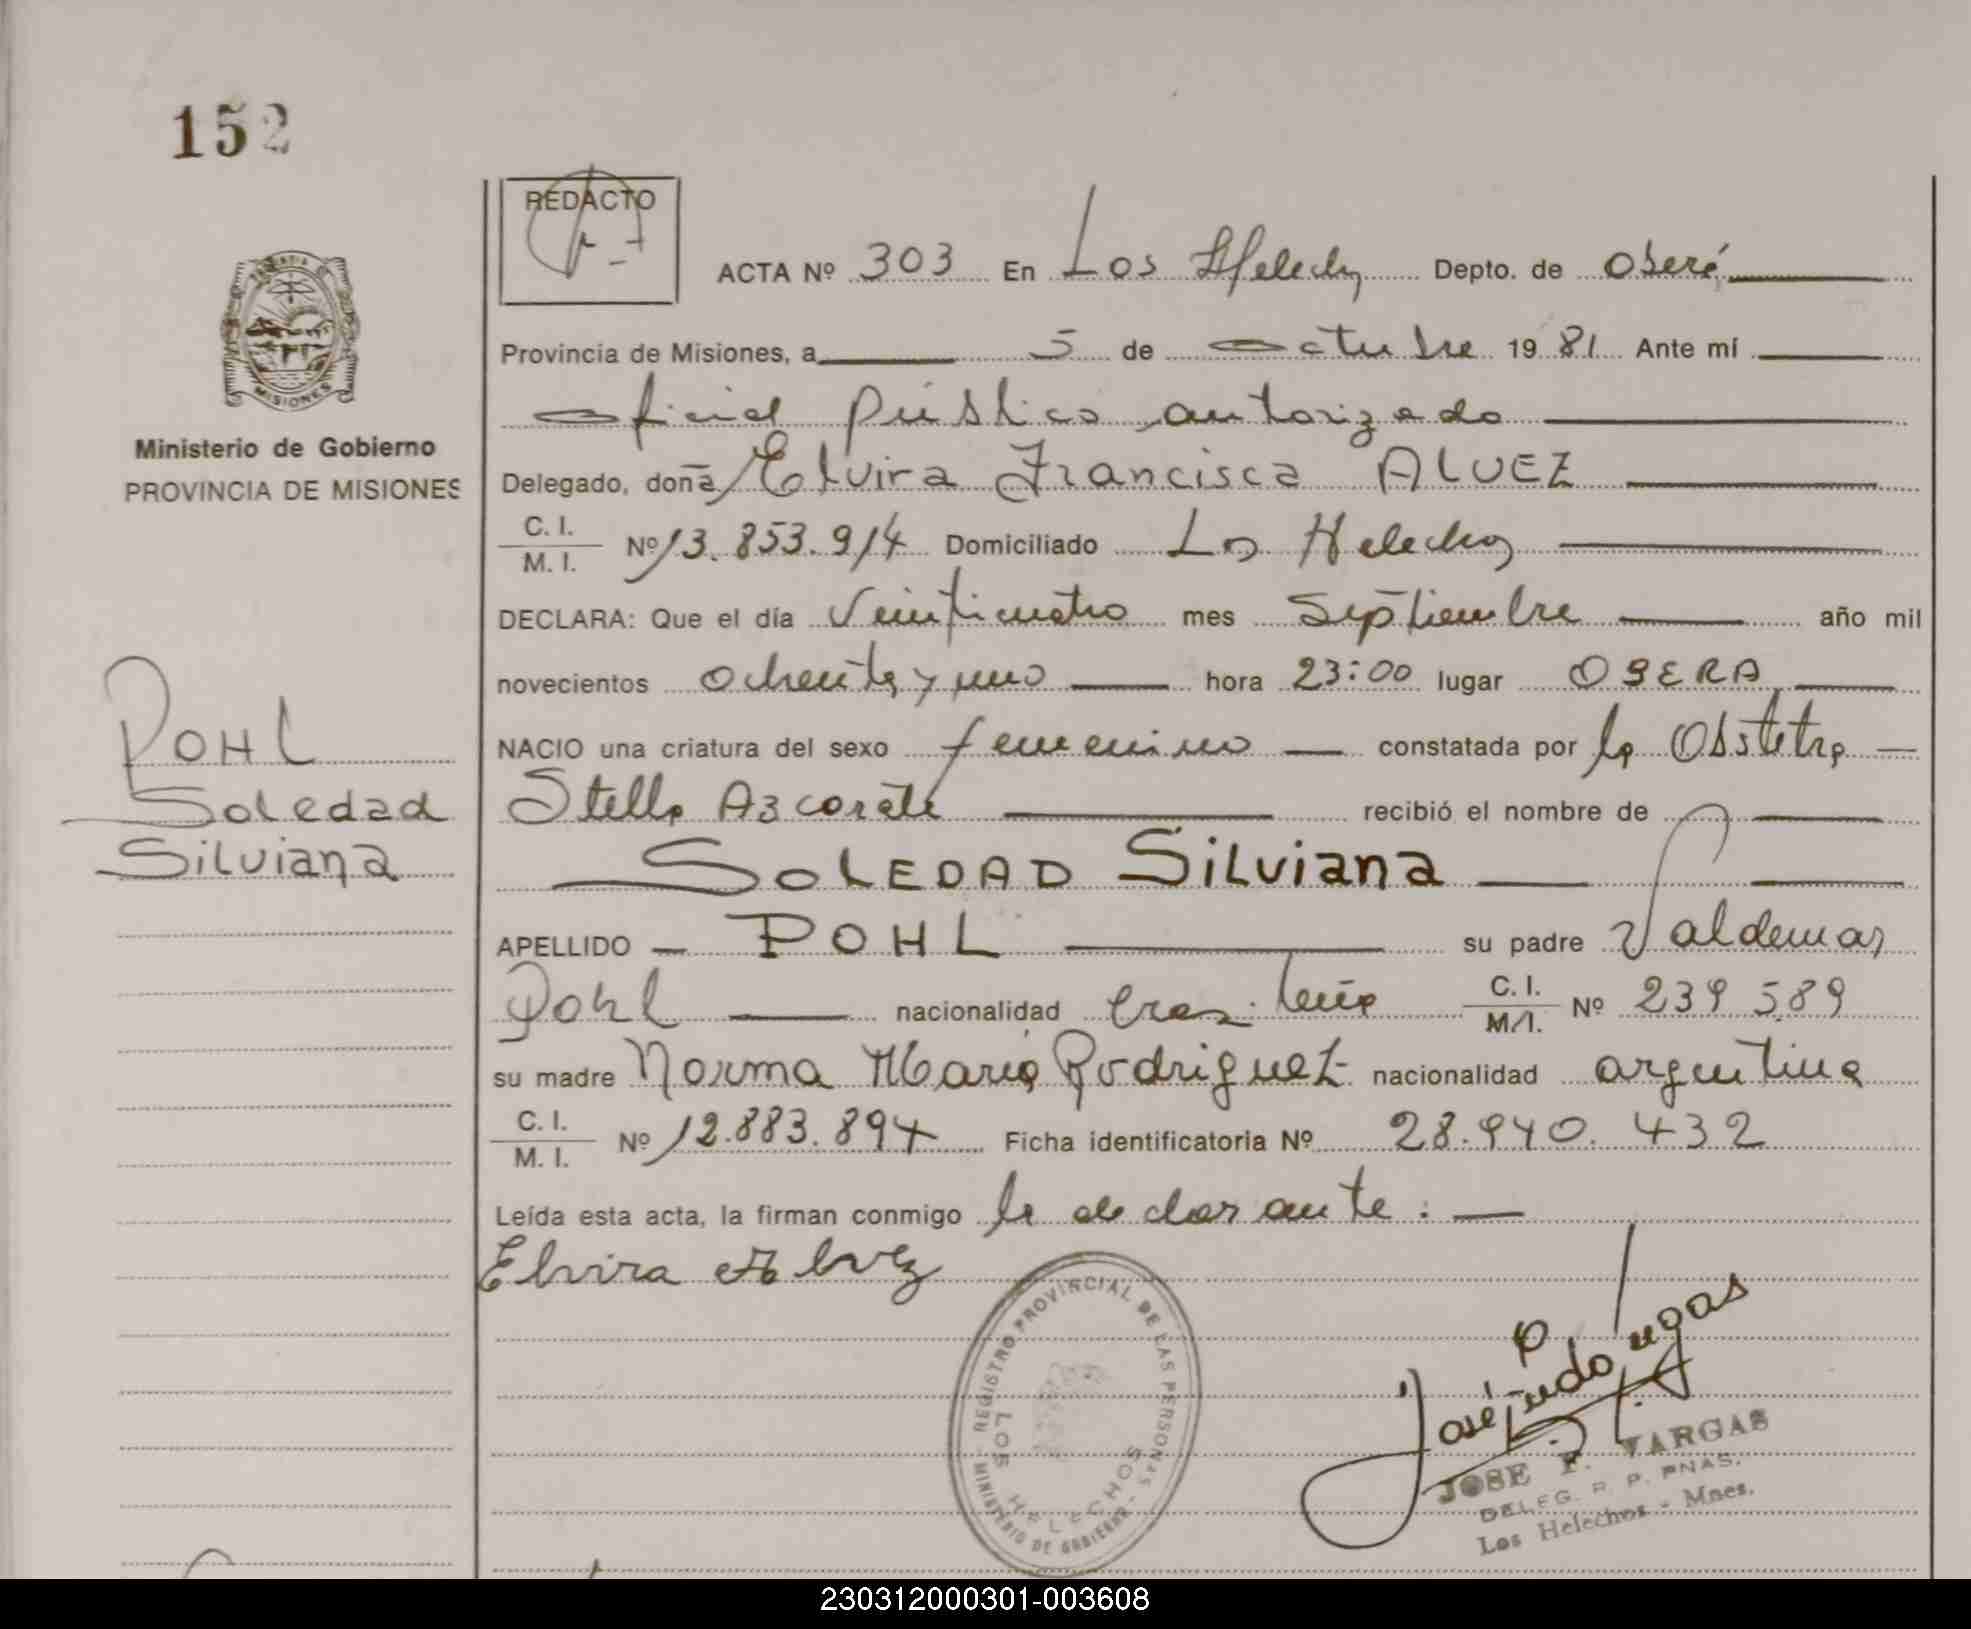 152
REDACTO
ACTA Nº 303 En Los Helechos Depto. de Oberá
Provincia de Misiones, a 5 de octubre 1981 Ante mí
oficial público autorizado
Delegado, doña Elvira Francisca ALVEZ
C. I.
M. I.
Nº 13.853.914 Domiciliado Los Helechos
DECLARA: Que el día Veinticuatro mes Septiembre año mil
novecientos ochenta y uno hora 23:00 lugar OBERA
NACIO una criatura del sexo femenino constatada por la Obstetra
Stella Azcorate recibió el nombre de
SOLEDAD SiLviana
APELLIDO POHL su padre Valdemar
Pohl nacionalidad brasileña C. I.
M.I.
Nº 239.589
su madre Norma María Rodriguez nacionalidad argentina
C. I.
M. I.
Nº 12.883.894 Ficha identificatoria Nº 28.940.432
Leída esta acta, la firman conmigo la declarante:
Elvira Alvez
MISIONES
Ministerio de Gobierno
PROVINCIA DE MISIONES
POHL
Soledad
Silviana
REGISTRO PROVINCIAL DE LAS PERSONAS
MINISTERIO DE GOBIERNO
LOS HELECHOS
JOSE F. VARGAS
DELEG. R. P. PNAS.
Los Helechos - Mnes.
230312000301-003608